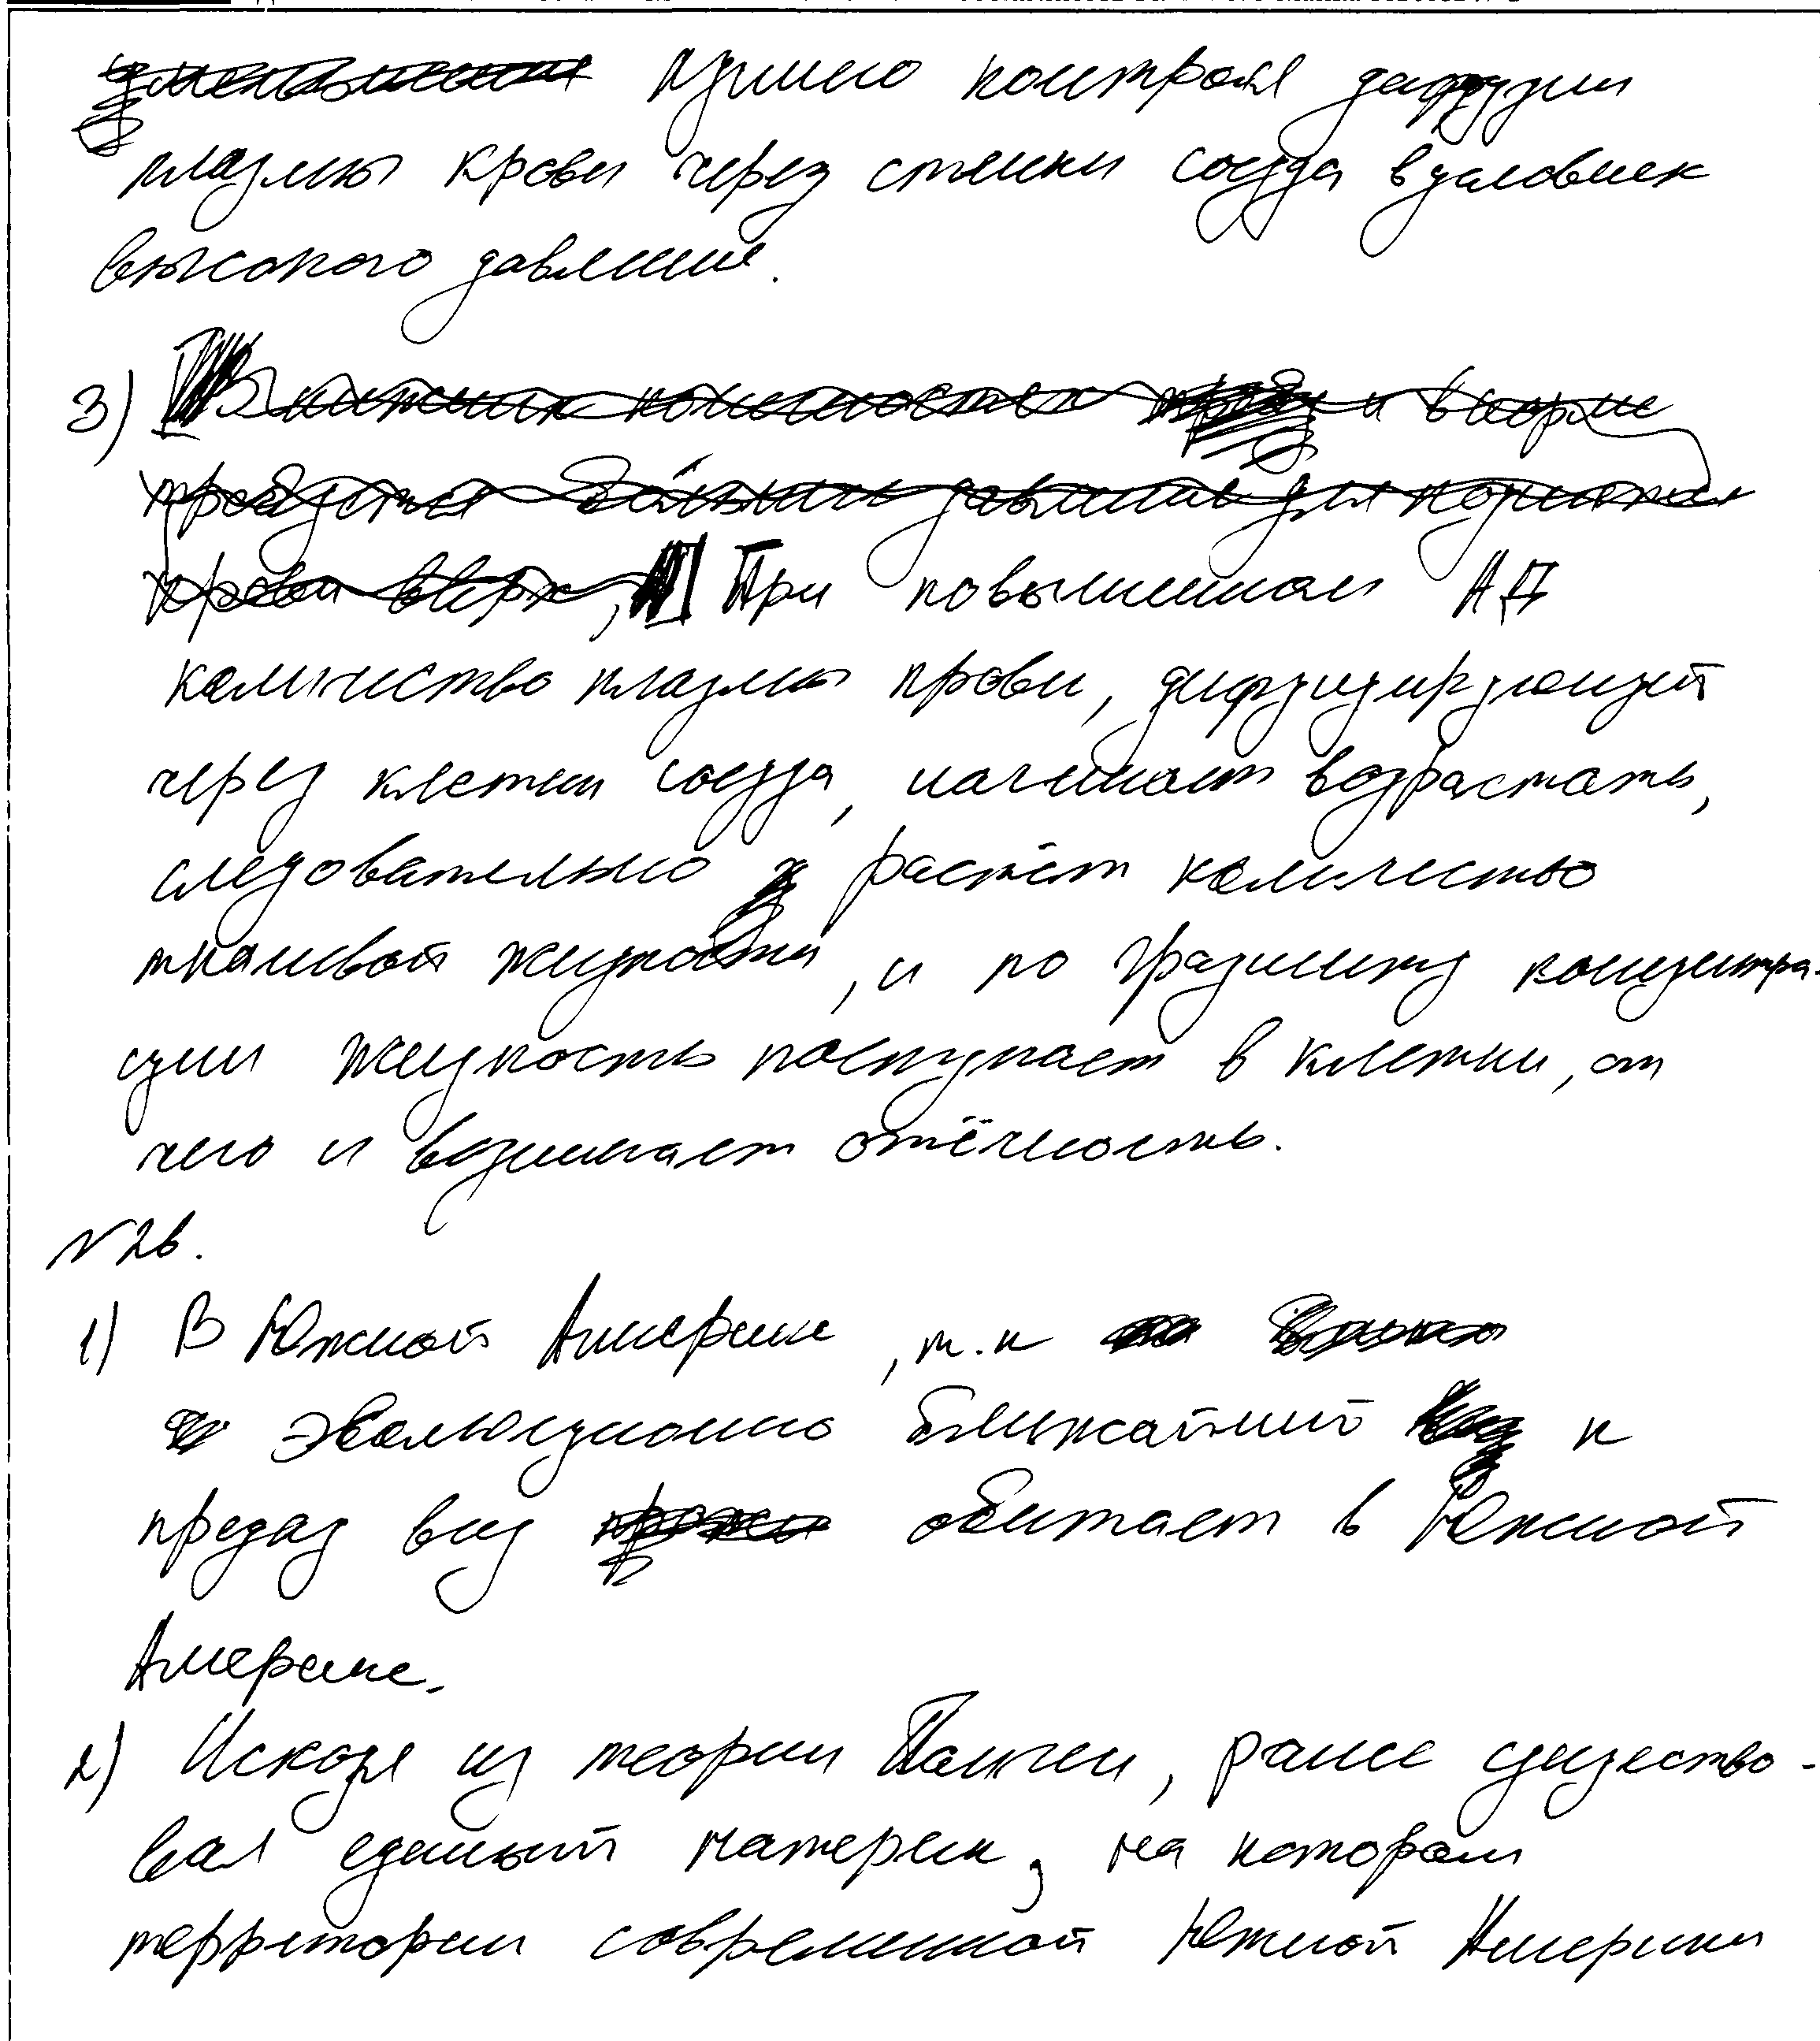 уменьшения нужно контроля диффузии
плазмы крови через стенки сосуда в условиях
высокого давления.
3) В нижних конечностях и в норме
требуется большее давление для поднятия
крови вверх, При повышенном АД
количество плазмы крови, диффузирующей
через клетки сосуда, начинает возрастать,
следовательно растёт количество
тканевой жидкости, и по градиенту концентра-
ции жидкость поступает в клетки, от
чего и возникает отёчность.
№26.
1) В Южной Америке, т.к
эволюционно ближайший к
предку вид обитает в Южной
Америке.
2) Исходя из теории Пангеи, ранее существо-
вал единый материк, на котором
территории современной Южной Америки